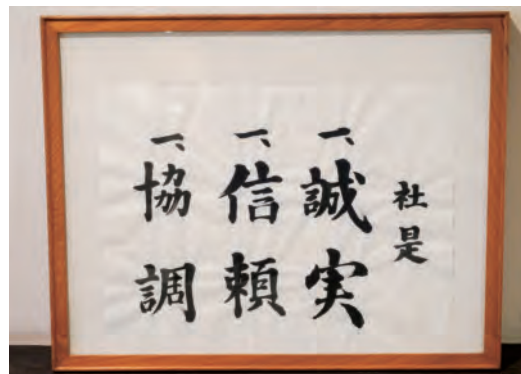 社是
一、誠実
一、信頼
一、協調